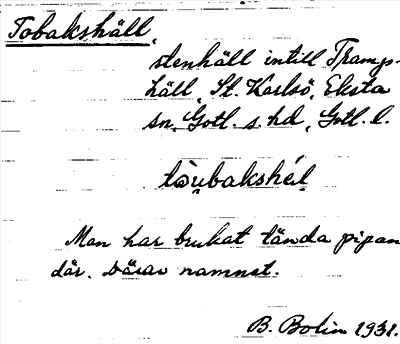 Tobakshäll,
stenhäll intill Tramps-
häll, St. Karlsö, Eksta
sn, Gotl. s. hd, Gotl. l.
tòu̯bakshél̩
Man har brukat tända pipan
där. Därav namnet.
B. Bolin 1931.